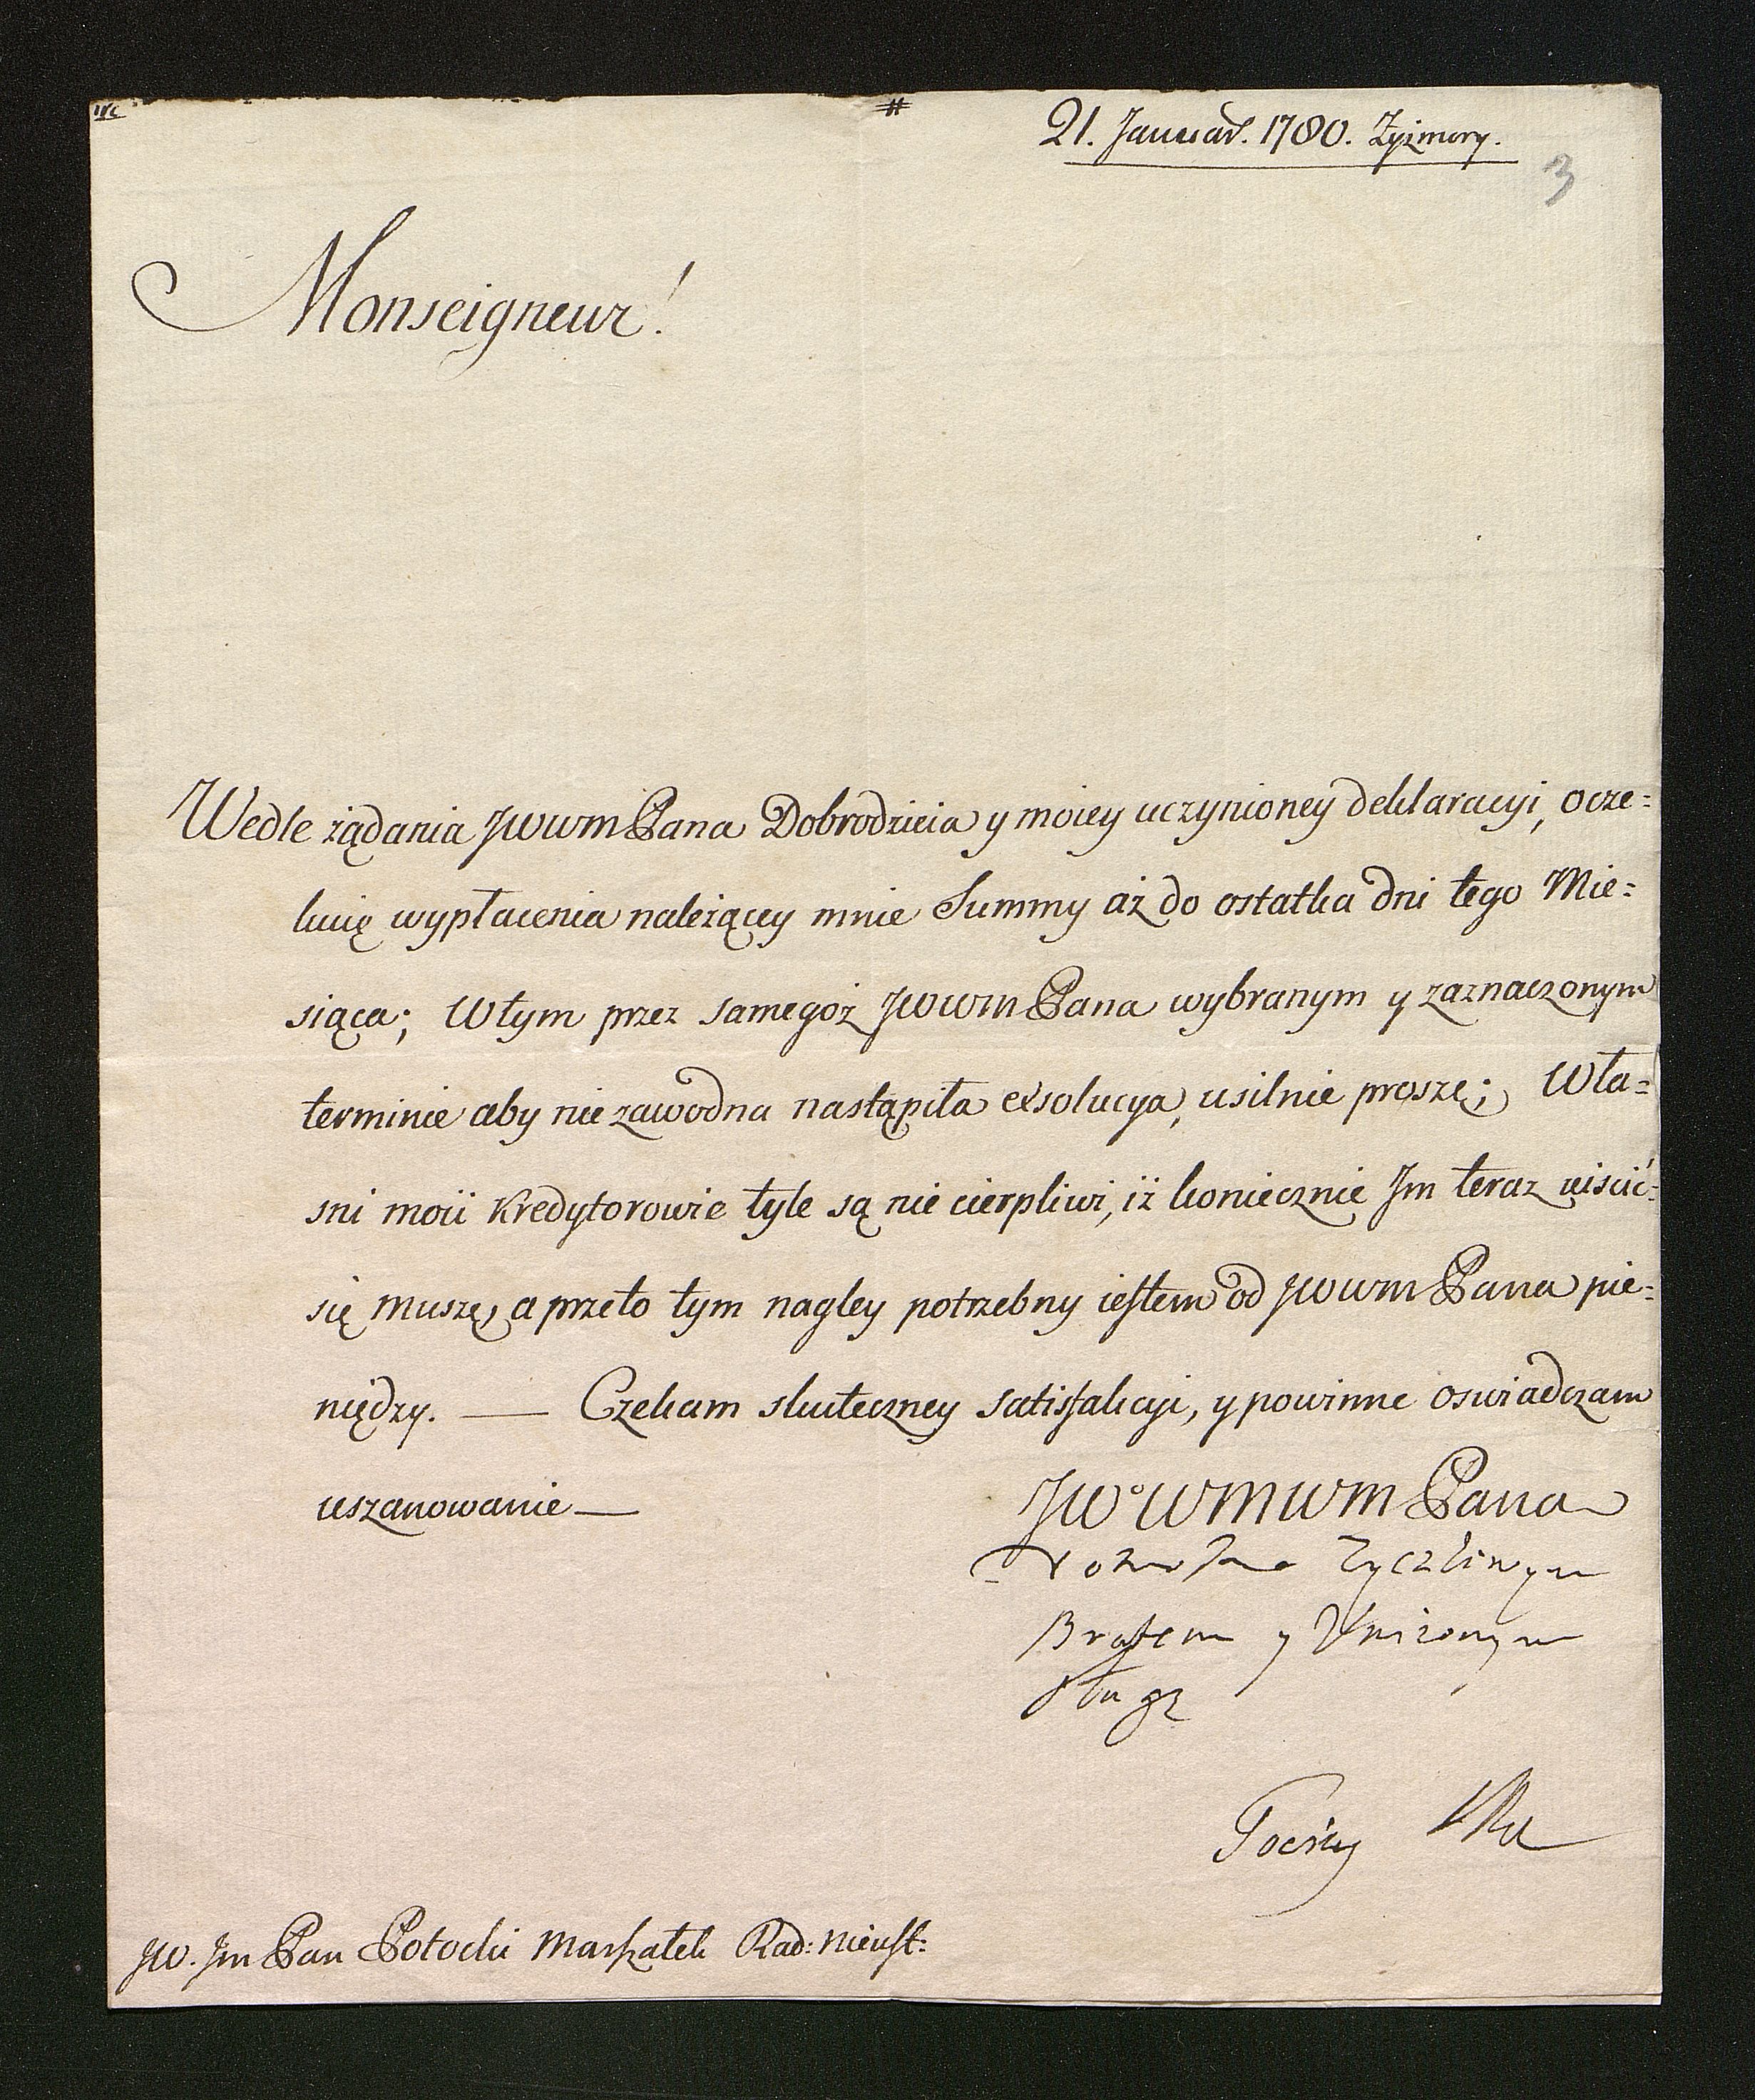 #
21. Januar. 1780. Zyzmory.
3
Monseigneur!
Wedle żądania JWWMPana Dobrodzieia y moiey uczynioney deklaracyi, ocze=
kuię wypłacenia należącey mnie Summy aż do ostatka dni tego Mie=
siąca; Wtym przez samegoż JWWMPana wybranym y zaznaczonym
terminie aby nie zawodna nastąpiła exsolucya, usilnie proszę; Wła=
sni moii Kredytorowie tyle są nie cierpliwi, iż koniecznie Jm teraz uiscić=
się muszę, a przeto tym nagley potrzebny iestem od JWWMPana pie=
niędzy. — Czekam skuteczney satisfakcyi, y powinne oswiadczam
uszanowanie —
JWo WMWMPana
Zyczliwym
Bratem y Unizonym
sługą
JW. Jm Pan Potocki Marszałek Rad: Nieust: